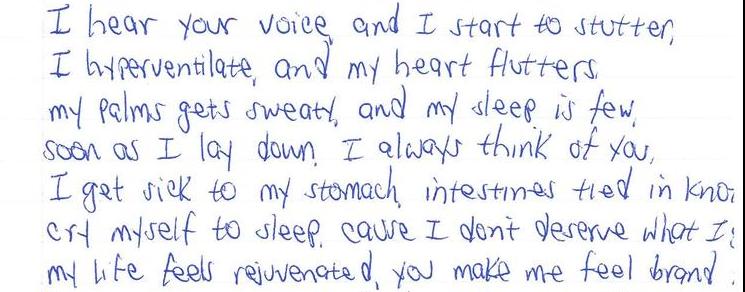 I hear your voice, and I start to stutter,
I hyperventilate, and my heart flutters.
my palms gets sweaty, and my sleep is few,
soon as I lay down, I always think of you,
I get sick to my stomach, intestines tied in
cry myself to sleep, cause I don't deserve what
my life feels rejuvenated, you make me feel brand